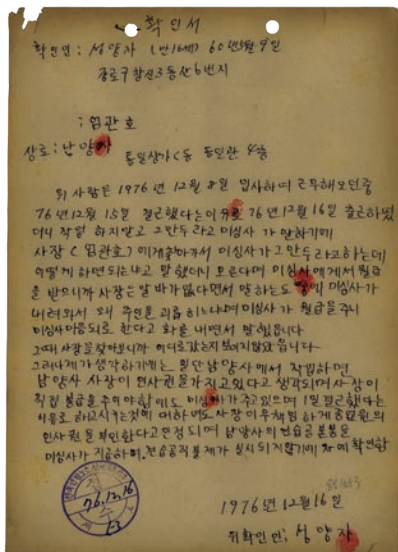 확인서
확인인: 성양자 (만16세) 60년5월9일
종로구 창신3동산6번지
: 임관호
상호: 남양사 통일상가C동 동일관 4층
위 사람은 1976년 12월 8일 입사하여 근무해오던중
76년 12월 15일 결근했다는 이유로 76년 12월 16일 출근하였
더니 작업하지말고 그만두라고 미싱사가 말하기에
사장 (임관호) 에게 찾아가서 미싱사가 그만두라고하는데
어떻게 하면되느냐고 말했더니 모른다며 미싱사에게서 월급
을 받으니까 사장은 알바가없다면서 말하는도중에 미싱사가
내려와서 왜 주인을 괴롭히느냐며 미싱사가 월급을주니
미싱사마음되로 한다고 화를 내면서 말했읍니다
그때 사장을찾아보니까 어디로갔는지 보이지않았읍니다
그러나제가생각하기에는 일단남양사에서 작업하면
남양사 사장이 인사권을가지고있다고 생각되며 사장이
직접 봉급을 주어야함에도 미싱사가주고있으며 1일결근했다는
이유로 하고시키는것에 대하여도 사장이무책임하게 종업원의
인사권을 부인한다고 인정되며 남양사의 견습공봉급을
미싱사가 지급하며 견습공직불제가 실시되지않기에 이에 확인함
76.12.16
1976년 12월 16일
위확인인: 성양자